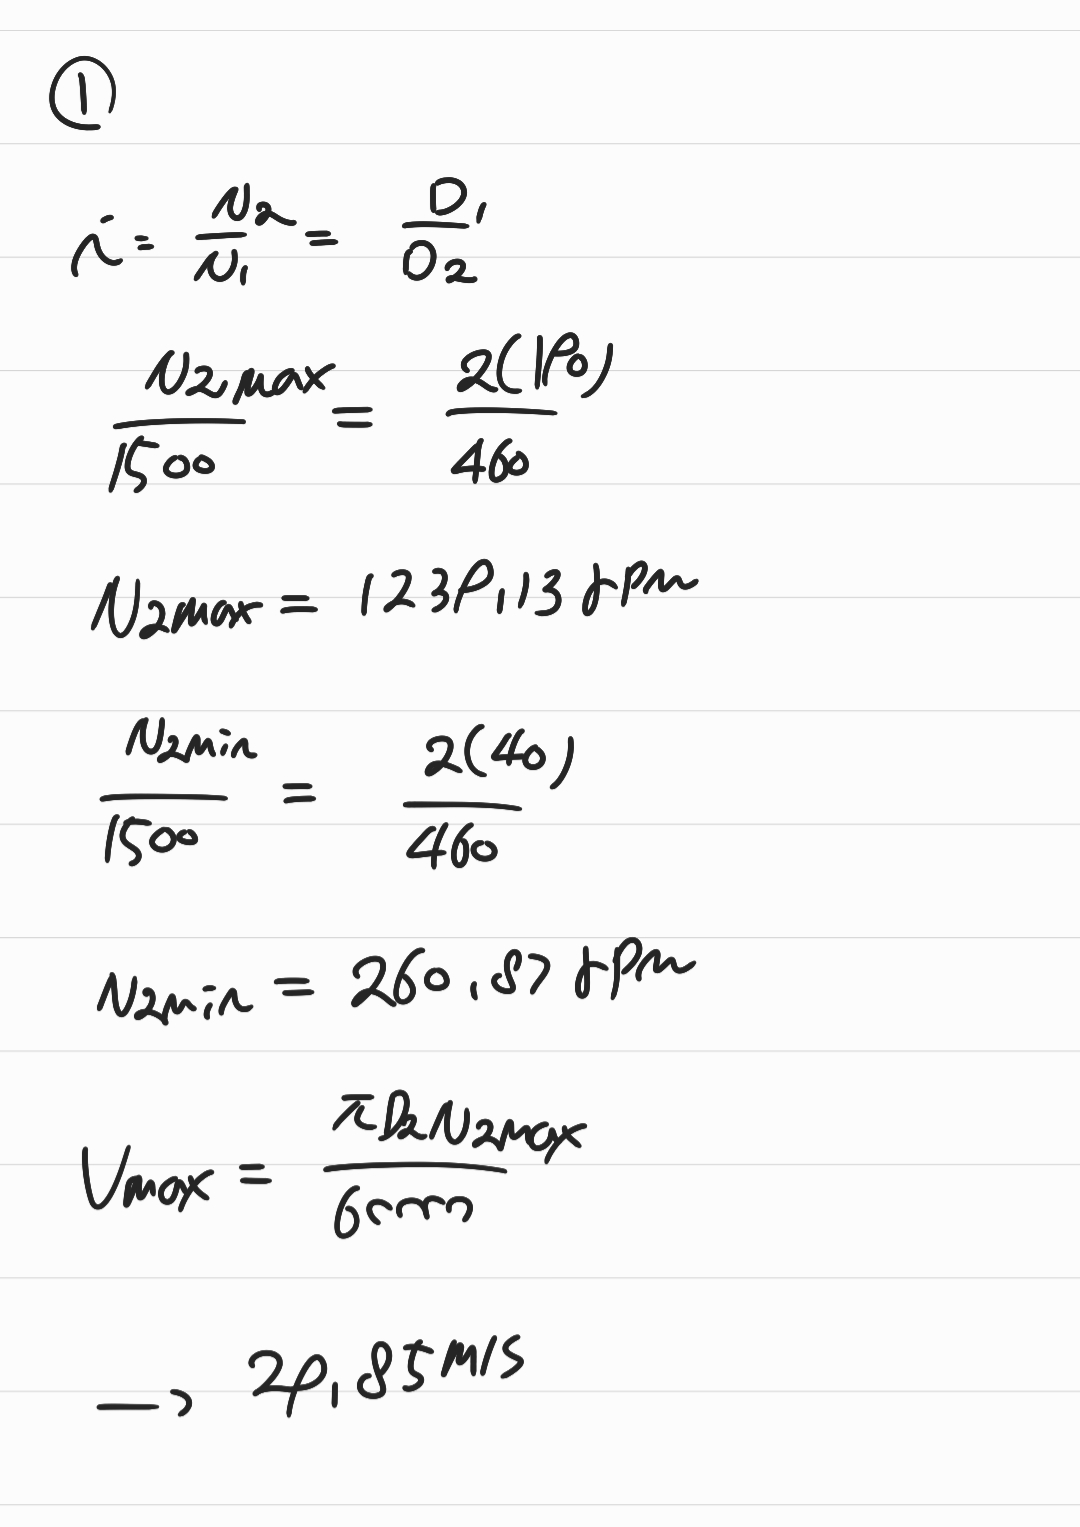 ①
i = N₂/N₁ = D₁/D₂
N₂max/1500 = 2(190)/460
N₂max = 1239,13 rpm
N₂min/1500 = 2(40)/460
N₂min = 260,87 rpm
Vmax = πD₂N₂max/60000
→ 29,85 m/s